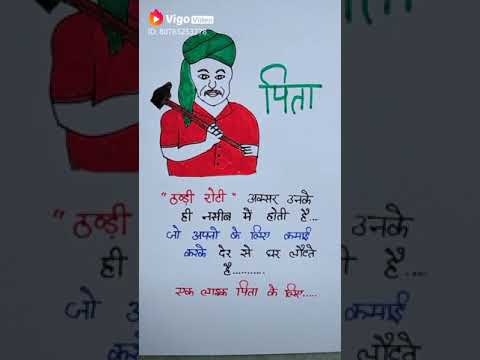 Vigo Video
ID: 80765253278
पिता
"ठण्डी रोटी" अक्सर उनके
ही नसीब में होती है...
जो अपनो के लिए कमाई
करके देर से घर लौटते
है..........
एक लाइक पिता के लिए.....